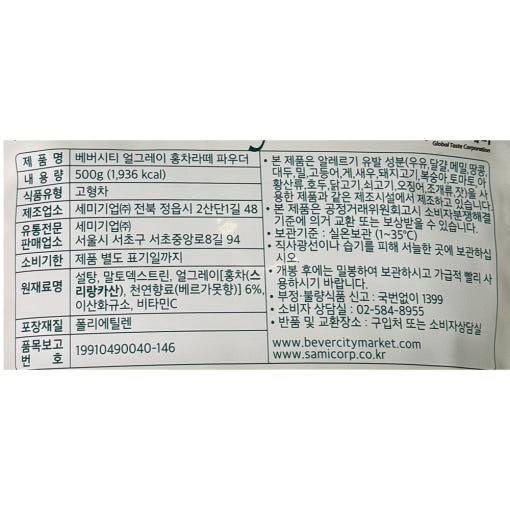 Global Taste Corporation
제 품 명 베버시티 얼그레이 홍차라떼 파우더
내 용 량 500g (1,936 kcal)
식품유형 고형차
제조업소 세미기업㈜ 전북 정읍시 2산단1길 48
유통전문 세미기업㈜
판매업소 서울시 서초구 서초중앙로8길 94
소비기한 제품 별도 표기일까지
원재료명 설탕, 말토덱스트린, 얼그레이[홍차(스
리랑카산), 천연향료(베르가못향)] 6%,
이산화규소, 비타민C
포장재질 폴리에틸렌
품목보고
번 호 19910490040-146
• 본 제품은 알레르기 유발 성분(우유,달걀,메밀,땅콩,
대두,밀,고등어,게,새우,돼지고기,복숭아,토마토,아
황산류,호두,닭고기,쇠고기,오징어,조개류,잣)을 사
용한 제품과 같은 제조시설에서 제조하고 있습니다.
• 본 제품은 공정거래위원회고시 소비자분쟁해결
기준에 의거 교환 또는 보상받을 수 있습니다.
• 보관기준 : 실온보관 (1~35℃)
• 직사광선이나 습기를 피해 서늘한 곳에 보관하십
시오.
• 개봉 후에는 밀봉하여 보관하시고 가급적 빨리 사
용하시기 바랍니다.
• 부정·불량식품 신고 : 국번없이 1399
• 소비자 상담실 : 02-584-8955
• 반품 및 교환장소 : 구입처 또는 소비자상담실
www.bevercitymarket.com
www.samicorp.co.kr